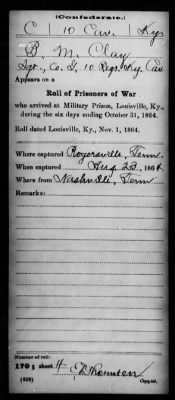 (Confederate.)
C 10 Cav. Ky.
B. M. Clay
Sgt., Co. I, 10 Regt. Ky. Cav.
Appears on a
Roll of Prisoners of War
who arrived at Military Prison, Louisville, Ky.,
during the six days ending October 31, 1864.
Roll dated Louisville, Ky., Nov. 1, 1864.
Where captured Rogersville, Tenn.
When captured Aug 23, 1864
Where from Nashville, Tenn.
Remarks:
Number of roll:
170; sheet 4
(639) Copyist.